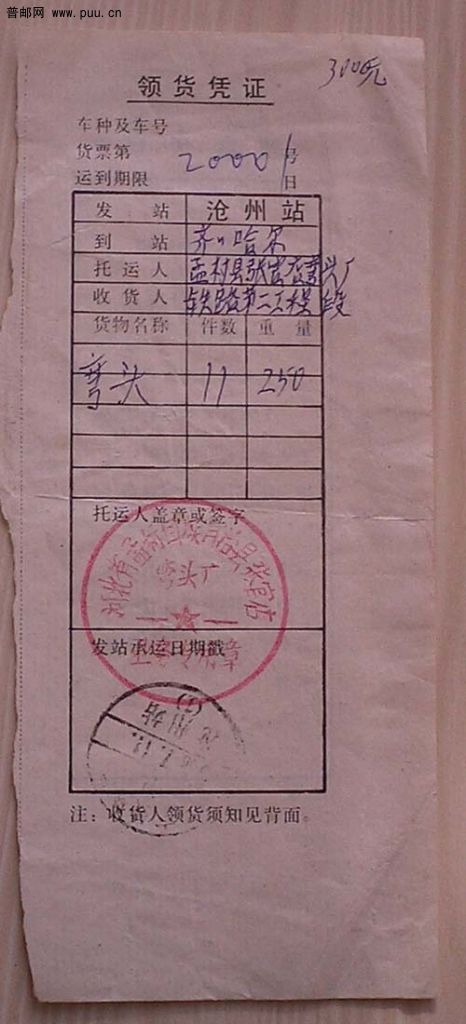 普邮网 www.puu.cn
3000元
领货凭证
车种及车号
货票第 20001号
运到期限 日
发站 沧州站
到站 齐哈尔
托运人 孟村县张官店弯头厂
收货人 铁路第二工程段
货物名称 件数 重量
弯头 11 250
托运人盖章或签字
弯头厂
发站承运日期戳
沧州站
(1)
注：收货人领货须知见背面。